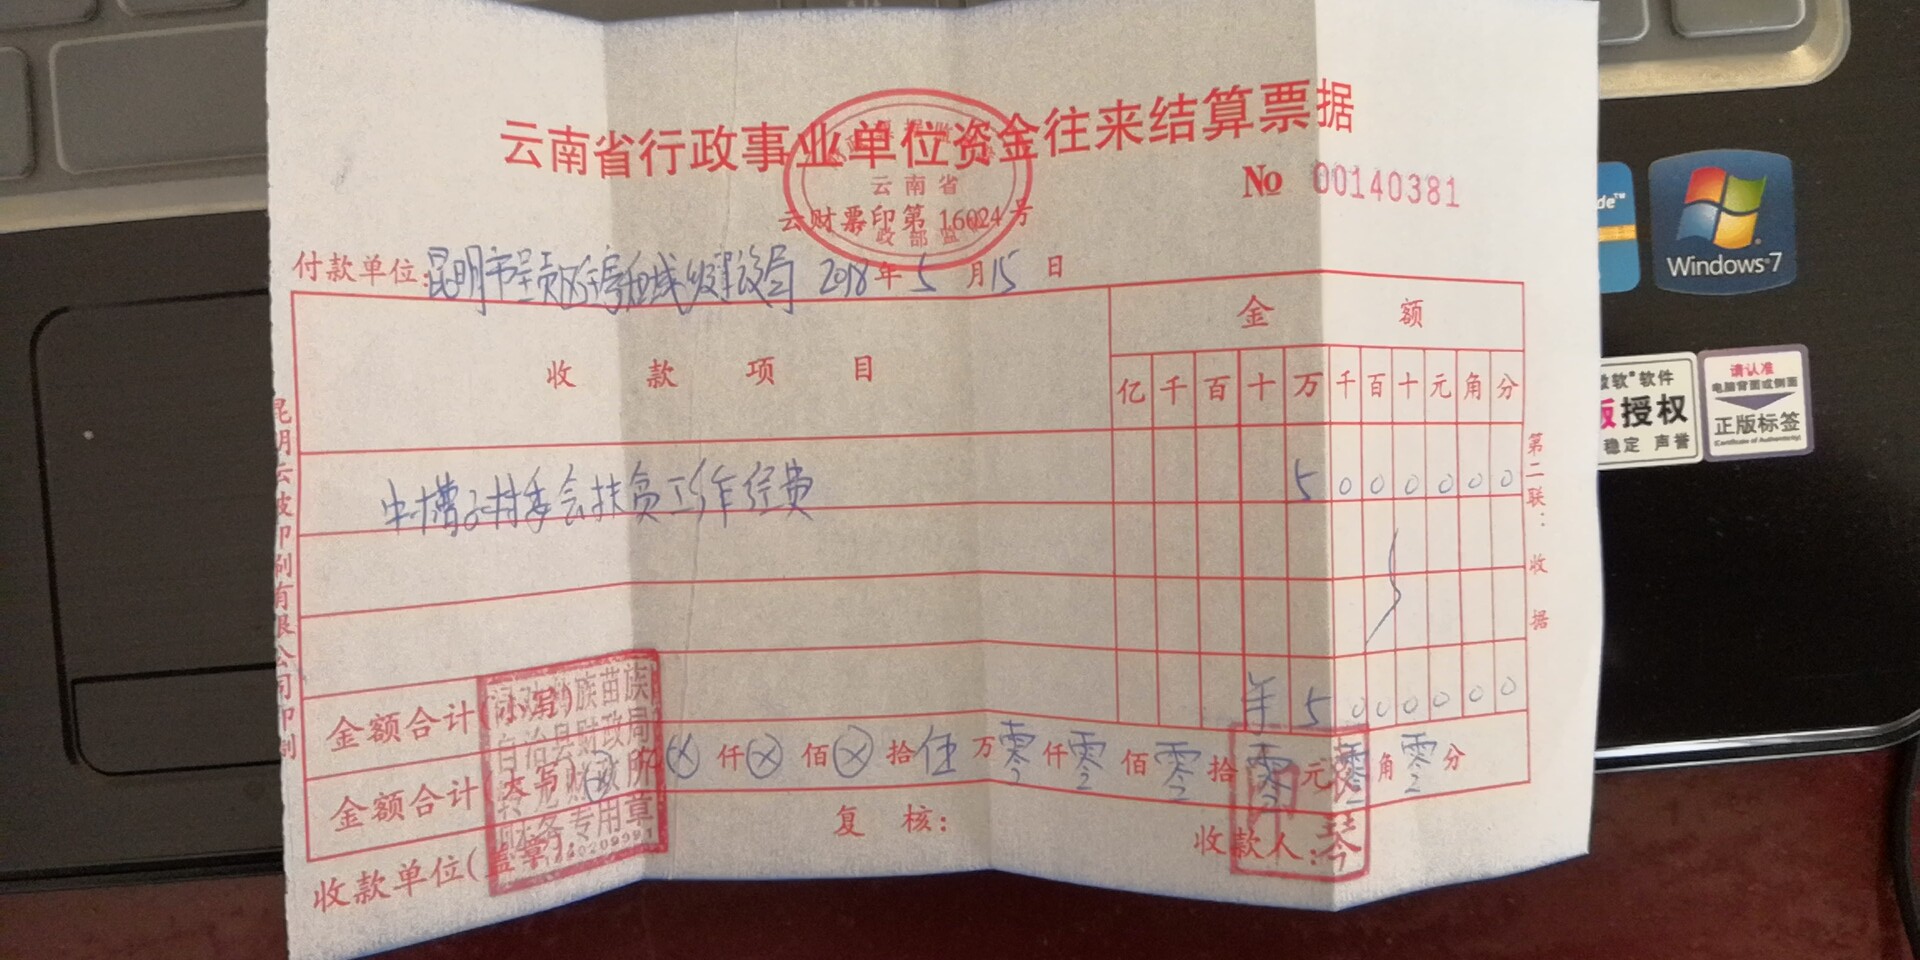 云南省行政事业单位资金往来结算票据
云南省
云财票印第 16024 号
No 00140381
付款单位:昆明市呈贡区住房和城乡建设局 2018年5月15日
收款项目
金额
亿 千 百 十 万 千 百 十 元 角 分
中槽子村委会扶贫工作经费
5 0 0 0 0 0 0
金额合计(小写)
¥ 5 0 0 0 0 0 0
金额合计(大写) 仟 佰 拾伍万零仟零佰零拾零元零角零分
收款单位(盖章)
复核:
收款人:
族苗族
自治县财政局
财政所
财务专用章
琴
第二联:收据
昆明云波印刷有限公司印刷
de™
Windows 7
微软®软件
版授权
稳定 声誉
请认准
电脑背面或侧面
正版标签
(Certificate of Authenticity)